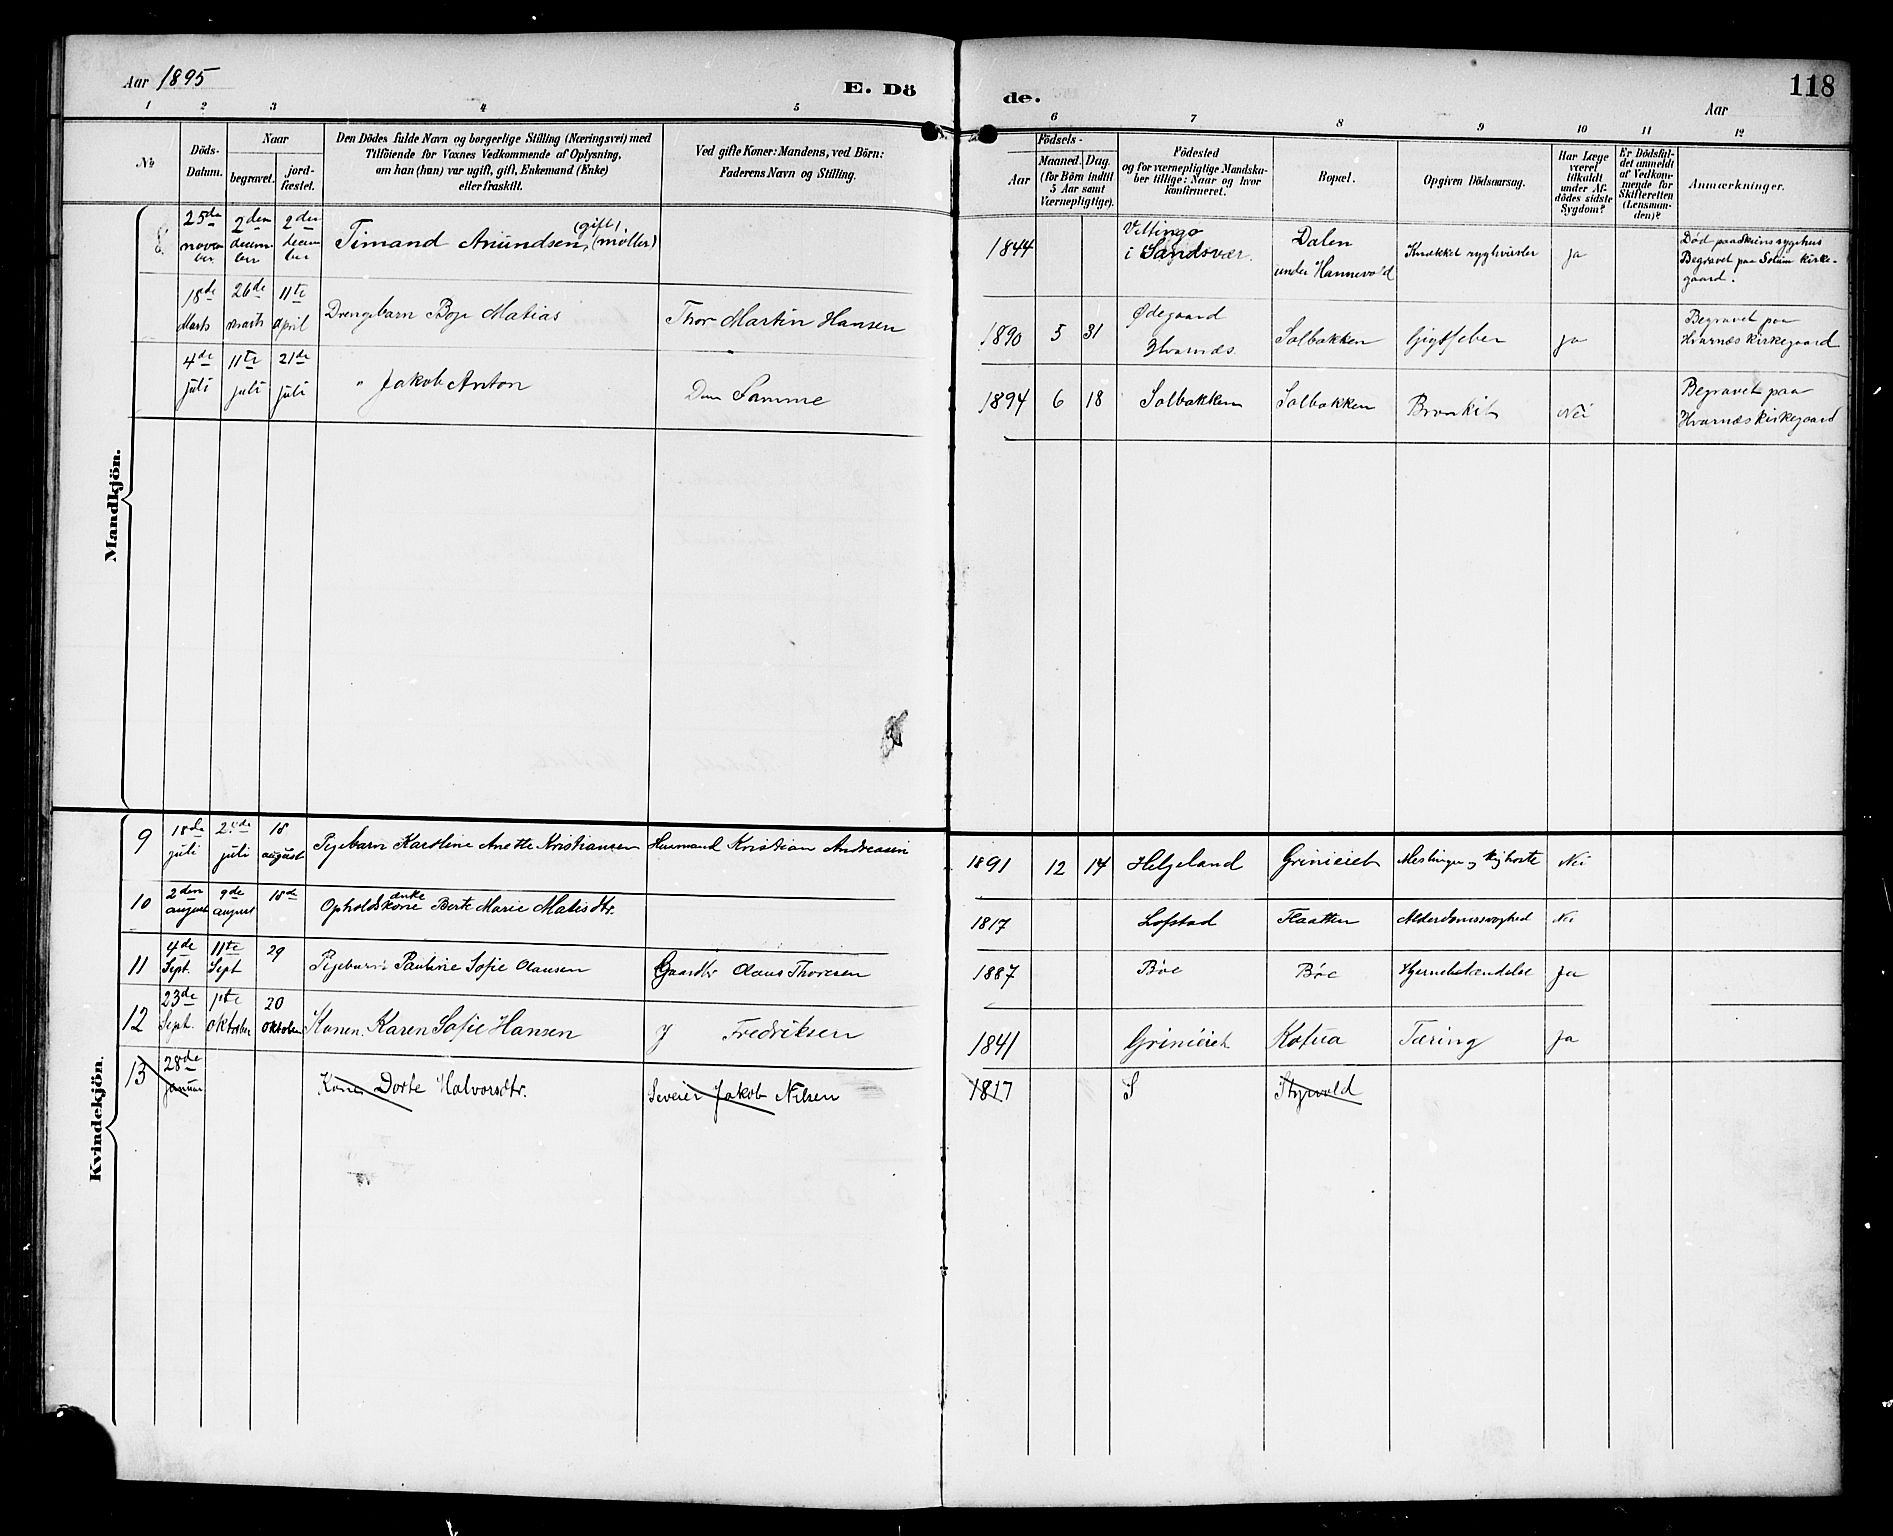 Aar 1895
E. Dö
de.
118
Aar
1 2 3 4 5 6 7 8 9 10 11 12
No
Döds-
Datum.
Naar
begravet.
jord-
fæstet.
Den Dödes fulde Navn og borgerlige Stilling (Næringsvei) med
Tilföiende for Voxnes Vedkommende af Oplysning,
om han (hun) var ugift, gift, Enkemand (Enke)
eller fraskilt.
Ved gifte Koner: Mandens, ved Börn:
Faderens Navn og Stilling.
Födsels-
Aar
Maaned. Dag.
(for Börn indtil
5 Aar samt
Værnepligtige).
Födested
og for værnepligtige Mandska-
ber tillige: Naar og hvor
konfirmeret.
Bopæl.
Opgiven Dödsaarsag.
Har Læge
været
tilkaldt
under Af-
dödes sidste
Sygdom?
Er Dödsfal-
det anmeldt
af Vedkom-
mende for
Skifteretten
(Lensman-
den)?
Anmærkninger.
Mandkjön.
8. 25de novem ber 2den decem ber 2den decem ber Timand Anundsen (gift) (møller) 1844 i Sandsvær. Dalen under Hannevold Knækket ryghvirvler Ja Død paa Skiens sygehus
Begravet paa Solum kirke-
gaard.
18de Marts 26de marts 11te april Drengebarn Boje Matias Thor Martin Hansen 1890 5 31 Ødegaard Hvarnæs. Solbakken Gigtfeber ja Begravet paa
Hvarnæs kirkegaard
4de juli 11te juli 21de juli " Jakob Anton Den Samme 1894 6 18 Solbakken Solbakken Bronkit Nei Begravet paa
Hvarnæs kirkegaard
Kvindekjön
9 18de juli 25de juli 18 august Pigebarn Karoline Anette Kristiansen Huusmand Kristian Andreasen 1891 12 14 Helgeland Grinieiet Meslinger og kighoste Nei
10 2den august 9de august 18de Opholdskone enke Berte Marie Matisdtr. 1817 Lofstad Flaatten Alderdomssvaghed Nei
11 4de Sept. 11te Sept 29 Pigebarn Pauline Sofie Olausen Gaardbr Olaus Thoresen 1887 Bøe Bøe Hjernebetændelse Ja
12 23de Sept. 1ste oktober 20 oktober Konen. Karen Sofie Hansen J Fredriksen 1841 Grinieiet Kofua Tæring Ja
13 28de januar Kone Dorte Halvorsdtr. Sveier Jakob Nilsen 1817 S Styrvold